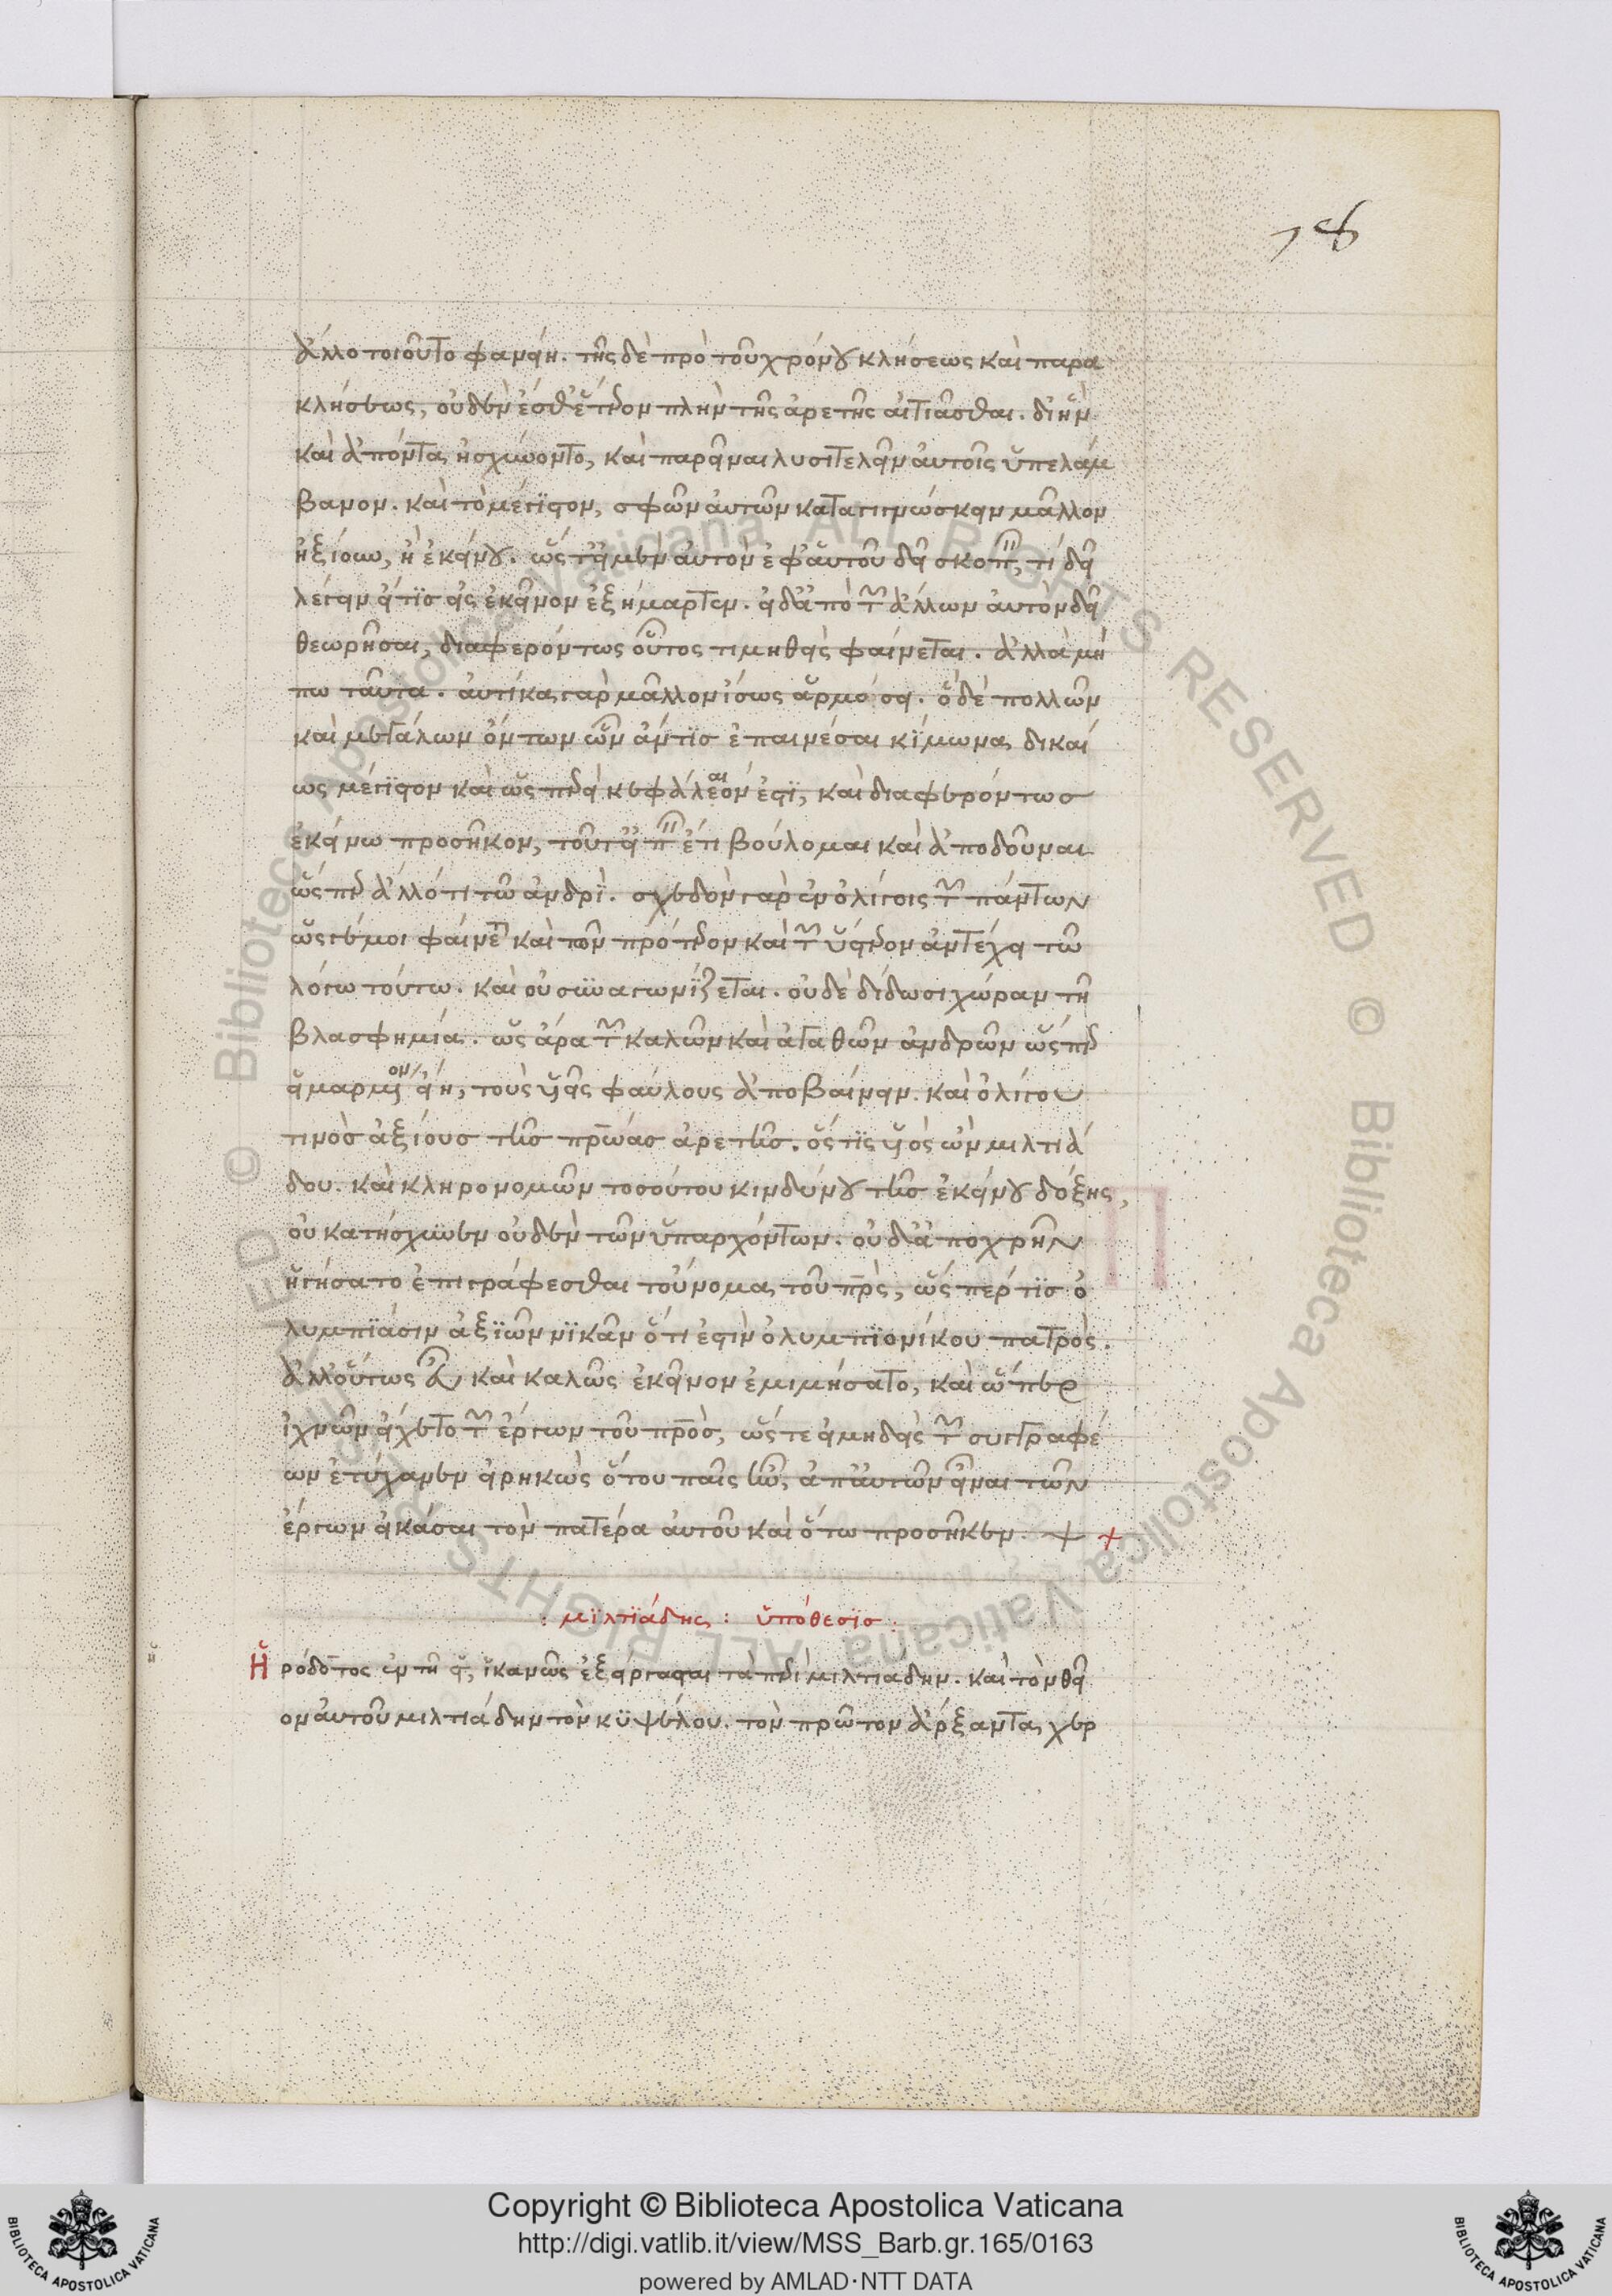 78
ἄλλο τοιοῦτο φανείη. τῆς δὲ πρὸ τοῦ χρόνου κλήσεως καὶ παρα
κλήσεως, οὐδὲν ἔσθ' ἕτερον πλὴν τῆς ἀρετῆς αἰτιᾶσθαι. δι' ἣν
καὶ ἀπόντα ᾐσχύνοντο, καὶ παρεῖναι λυσιτελεῖν αὐτοῖς ὑπελάμ
βανον. καὶ τὸ μέγιστον, σφῶν αὐτῶν καταγιγνώσκειν μᾶλλον
ἠξίουν, ἢ ἐκείνου. ὥστ' εἰ μὲν αὐτὸν ἐφ' αὑτοῦ δεῖ σκοπεῖν, τί δεῖ
λέγειν εἴ τις εἰς ἐκεῖνον ἐξήμαρτεν. εἰ δ' ἀπὸ τῶν ἄλλων αὐτὸν δεῖ
θεωρῆσαι, διαφερόντως οὗτος τιμηθεὶς φαίνεται. ἀλλὰ μή
πω ταῦτα. αὐτίκα γὰρ μᾶλλον ἴσως ἁρμόσει. ὃ δὲ πολλῶν
καὶ μεγάλων ὄντων ὧν ἄν τις ἐπαινέσαι κίμωνα δικαί
ως μέγιστον καὶ ὡσπερεὶ κεφάλεαιόν ἐστι, καὶ διαφερόντως
ἐκείνω προσῆκον, τοῦτ' εἰπεῖν ἔτι βούλομαι καὶ ἀποδοῦναι
ὥσπερ ἄλλό τι τῶ ἀνδρί. σχεδὸν γὰρ ἐν ὀλίγοις τῶν πάντων
ὥς γ' ἐμοι φαίνεται καὶ τῶν πρότερον καὶ τῶν ὕστερον ἀντέχει τῶ
λόγω τούτω. καὶ οὐ συναγωνίζεται. οὐδὲ δίδωσι χώραν τῆ
βλασφημία. ὡς ἄρα τῶν καλῶν καὶ ἀγαθῶν ἀνδρῶν ὥσπερ
εἱμαρμένον εἴη, τοὺς υἱεῖς φαύλους ἀποβαίνειν. καὶ ὀλίγου
τινὸς ἀξίους τῆς πρώας ἀρετῆς. ὅςτις υἱὸς ὢν μιλτιά
δου. καὶ κληρονομῶν τοσούτου κινδύνου τῆς ἐκείνου δόξης,
οὐ κατήσχυνεν οὐδὲν τῶν ὑπαρχόντων. οὐδ' ἀποχρῆν
ἡγήσατο ἐπιγράφεσθαι τοὔνομα τοῦ πρς, ὥσπερ τις ὀ
λυμπίασιν ἀξιῶν νικᾶν ὅτι ἐστὶν ὀλυμπιονίκου πατρός.
ἀλλ' οὕτως εὖ καὶ καλῶς ἐκεῖνον ἐμιμήσατο, καὶ ὥσπερ
ἰχνῶν εἴχετο τῶν ἔργων τοῦ πρὸς, ὥστε εἰ μηδεὶς τῶν συγγραφέ
ων ἐτύγχανεν εἰρηκὼς ὅτου παῖς ἦν, ἀπ' αὐτῶν εἶναι τῶν
ἔργων εἰκάσαι τὸν πατέρα αὐτοῦ καὶ ὅτω προσῆκεν.
: μϊλτϊάδης : ὑπόθεσϊς :
Ἡρόδοτος ἐν τῆ ϛ, ἱκανῶς ἐξείργασται τὰ περὶ μιλτιάδην. καὶ τὸν θεῖ
ον αὐτοῦ μιλτιάδην τὸν κυψέλου. τὸν πρῶτον ἄρξαντα χερ
Copyright © Biblioteca Apostolica Vaticana
http://digi.vatlib.it/view/MSS_Barb.gr.165/0163
powered by AMLAD·NTT DATA